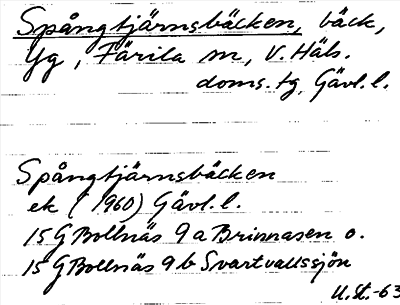 Spångtjärnsbäcken, bäck,
Yg, Färila sn, V. Häls.
doms. tg, Gävl. l.
Spångtjärnsbäcken
ek (1960) Gävl. l.
15 G Bollnäs 9 a Brinnasen o.
15 G Bollnäs 9 b Svartvallssjön
U.St.-63